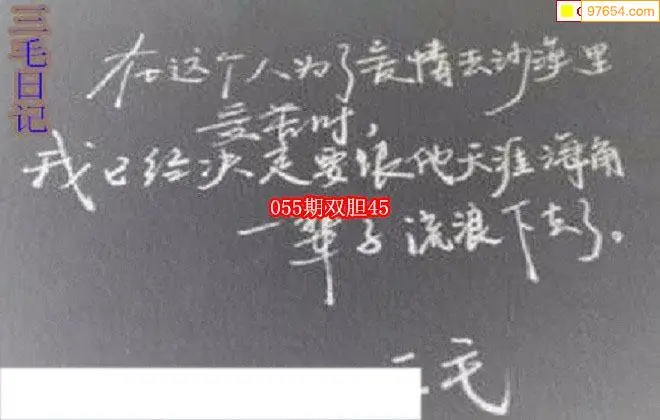 97654.com
三毛日记
在这个人为了爱情去沙漠里
受苦时,
我已经决定要跟他天涯海角
055期双胆45
一辈子流浪下去了。
三毛